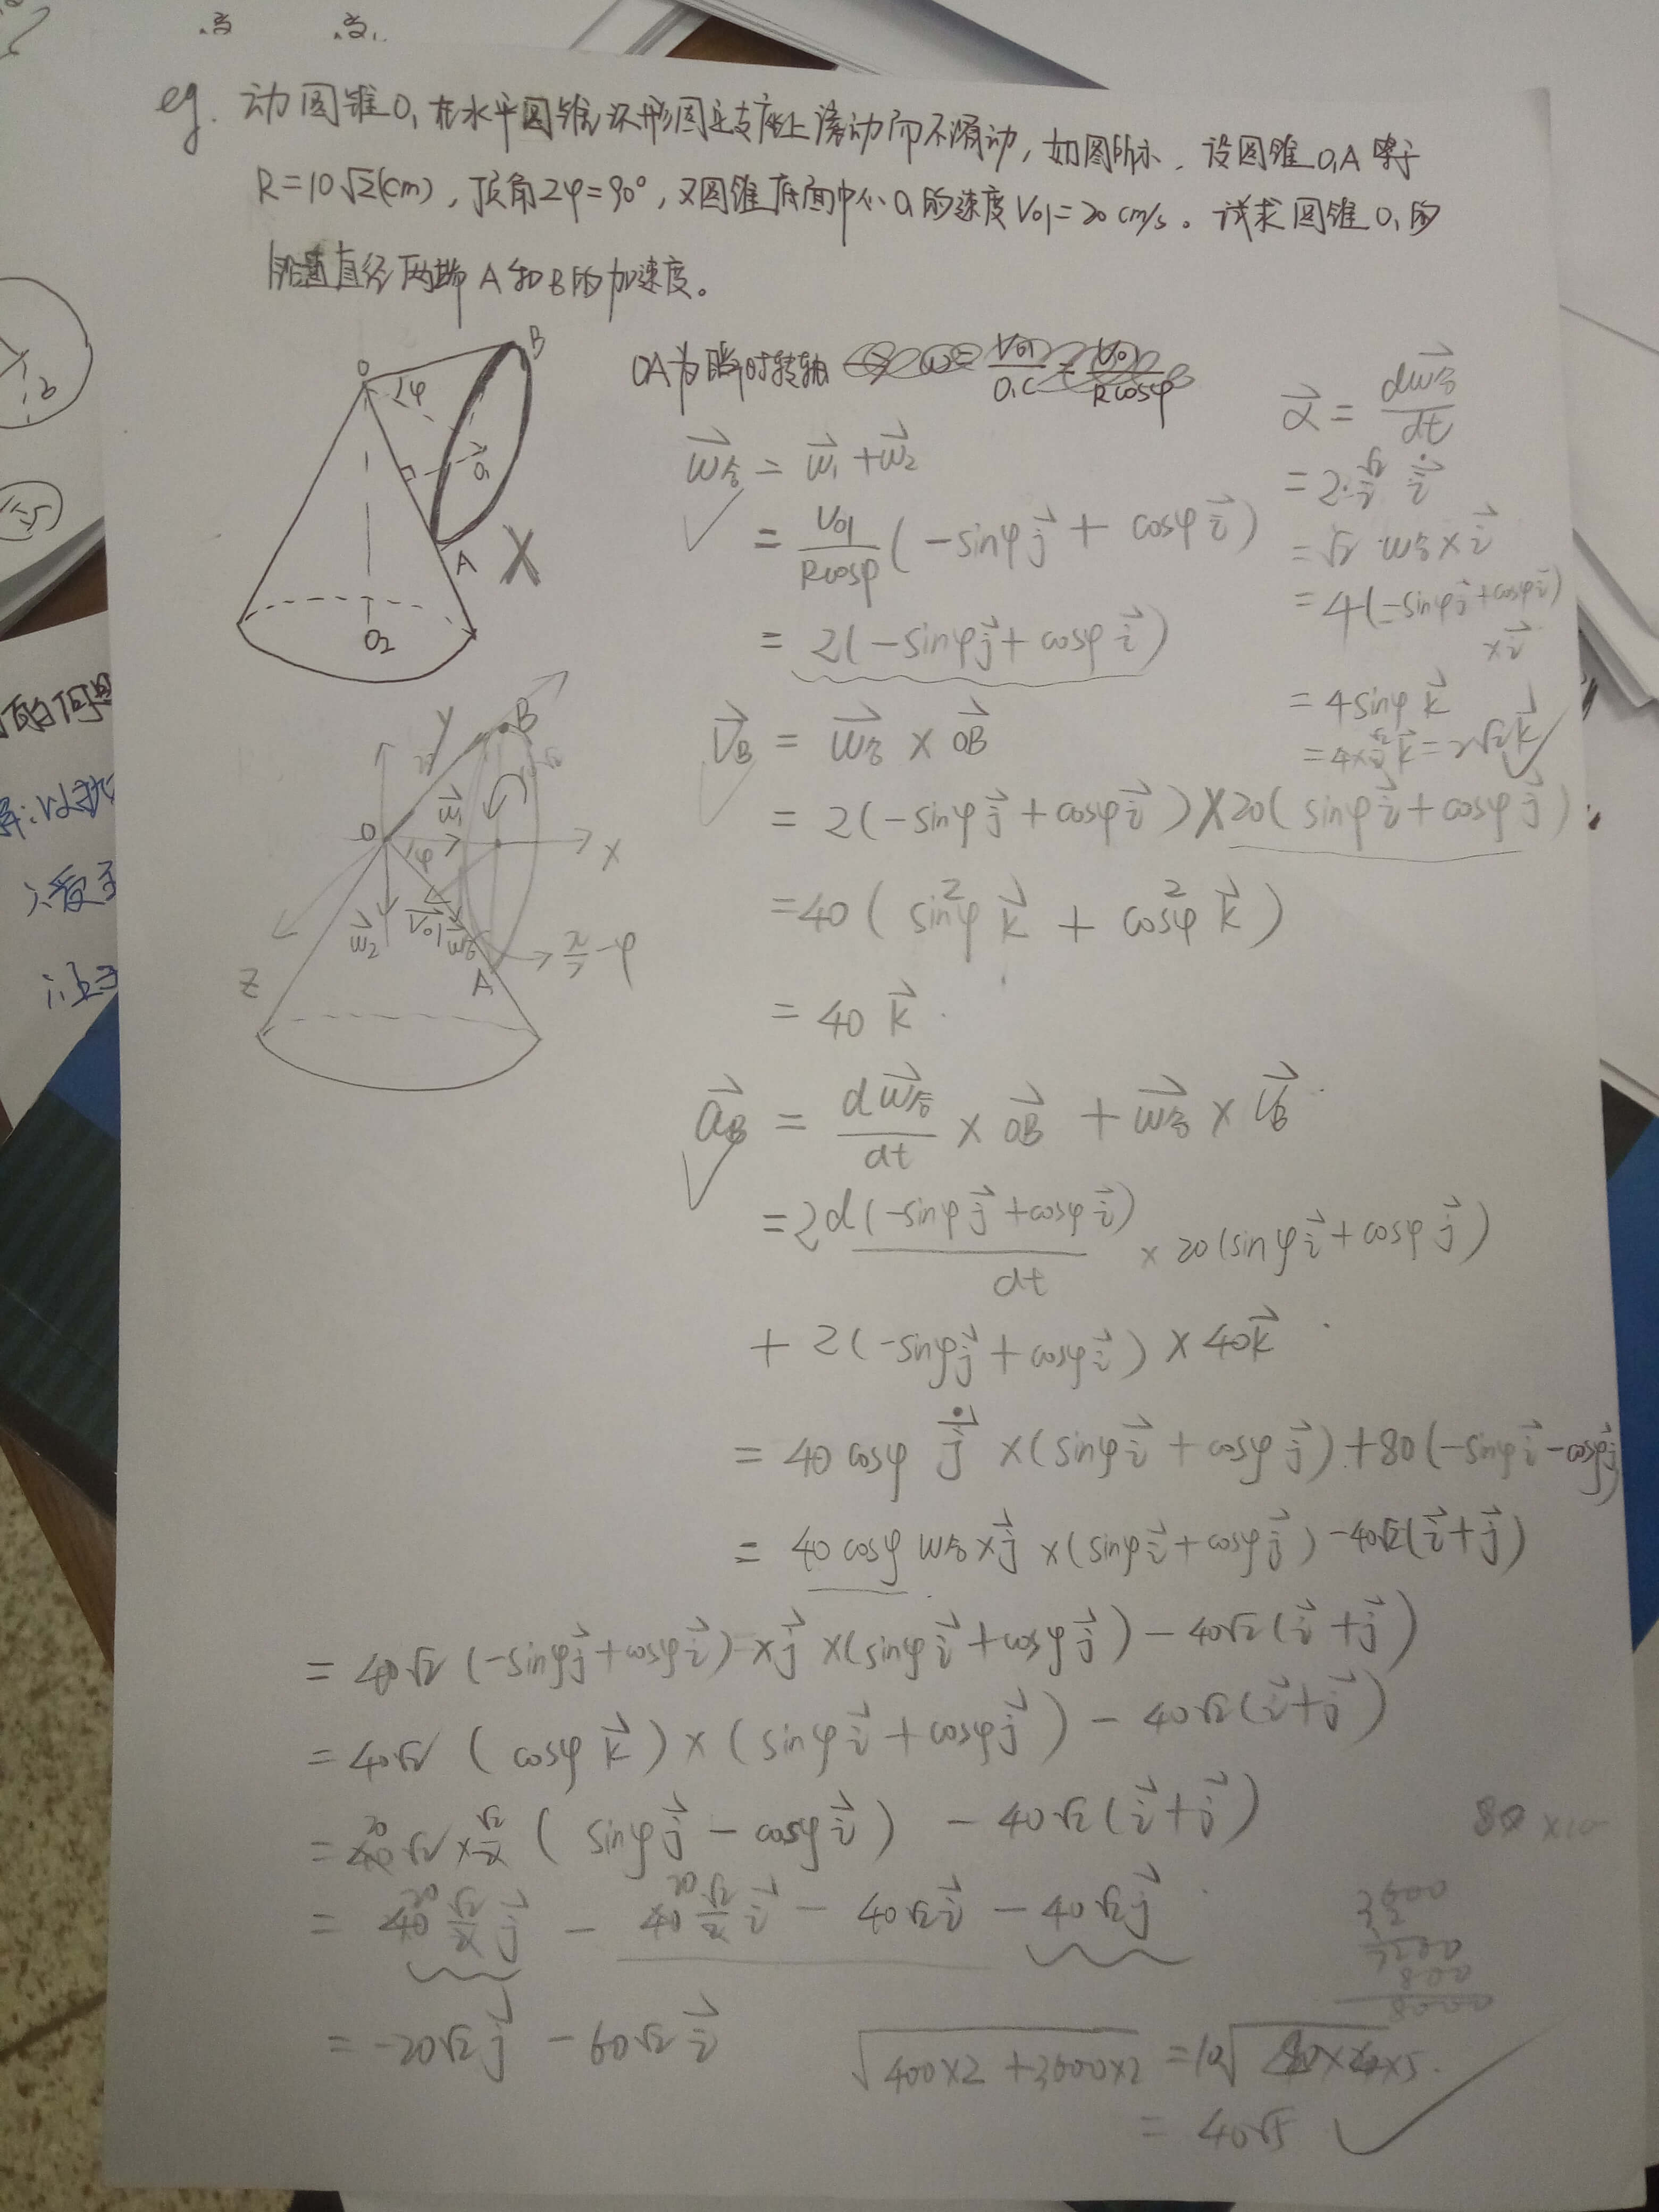 eg. 动圆锥O₁在水平圆锥环形固定支座上滚动而不滑动,如图所示.设圆锥O₁A等于
R=10√2(cm),顶角2φ=90°,又圆锥底面中心O₁的速度V₀₁=20 cm/s。试求圆锥O₁的
铅直直径两端A和B的加速度。
OA为瞬时转轴
O
2φ
B
O₁
A
X
O₂
ω⃗合 = ω⃗₁ + ω⃗₂
= V₀₁/Rcosφ (-sinφ j⃗ + cosφ i⃗)
= 2(-sinφ j⃗ + cosφ i⃗)
α⃗ = dω⃗合/dt
= √2 ω合 × i⃗
= 4(-sinφ j⃗ + cosφ i⃗)
× i⃗
= 4sinφ k⃗
= 4×√2/2 k⃗ = 2√2 k⃗ ✓
V⃗B = ω⃗合 × OB⃗
= 2(-sinφ j⃗ + cosφ i⃗) × 20(sinφ i⃗ + cosφ j⃗)
= 40(sin²φ k⃗ + cos²φ k⃗)
= 40 k⃗
y
B
20
ω⃗₁
O
φ
x
ω⃗₂
V⃗₀₁
ω⃗合
A
π/2-φ
z
a⃗B = dω⃗合/dt × OB⃗ + ω⃗合 × V⃗B
= 2d(-sinφ j⃗ + cosφ i⃗)/dt × 20(sinφ i⃗ + cosφ j⃗)
+ 2(-sinφ j⃗ + cosφ i⃗) × 40k⃗
= 40 cosφ j⃗̇ × (sinφ i⃗ + cosφ j⃗) + 80(-sinφ i⃗ - cosφ j⃗)
= 40 cosφ ω合 × j⃗ × (sinφ i⃗ + cosφ j⃗) - 40√2(i⃗ + j⃗)
= 40√2 (-sinφ j⃗ + cosφ i⃗) × j⃗ × (sinφ i⃗ + cosφ j⃗) - 40√2(i⃗ + j⃗)
= 40√2 (cosφ k⃗) × (sinφ i⃗ + cosφ j⃗) - 40√2(i⃗ + j⃗)
= 40√2 × √2/2 (sinφ j⃗ - cosφ i⃗) - 40√2(i⃗ + j⃗)
= 40 √2/2 j⃗ - 40 √2/2 i⃗ - 40√2 i⃗ - 40√2 j⃗
= -20√2 j⃗ - 60√2 i⃗
√(400×2 + 3600×2)
= 40√5 ✓
3600
800
8000